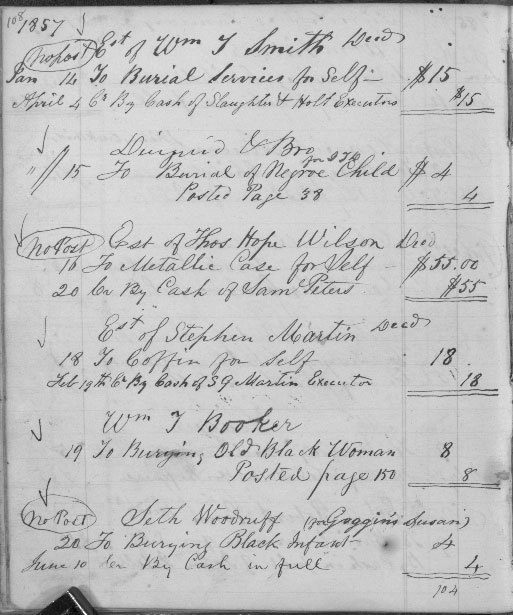 108
1857
no post Est of Wm T Smith Decd
Jan 14 To Burial Services for Self $15
April 4 Cr By Cash of Slaughter & Holt Executors $15
Diuguid & Bro
" 15 To Burial of Negroe Child $4
Posted Page 38 4
No Post Est of Thos Hope Wilson Decd
16 To Metallic Case for Self $55.00
20 Cr By Cash of Sam Peters $55
Est of Stephen Martin Decd
18 To Coffin for Self 18
Feb 19th Cr By Cash of S G Martin Executor 18
Wm T Booker
19 To Burying Old Black Woman 8
Posted page 150 8
No Post Seth Woodruff (for Goggin's Susan)
20 To Burying Black Infant 4
June 10 Cr By Cash in full 4
104